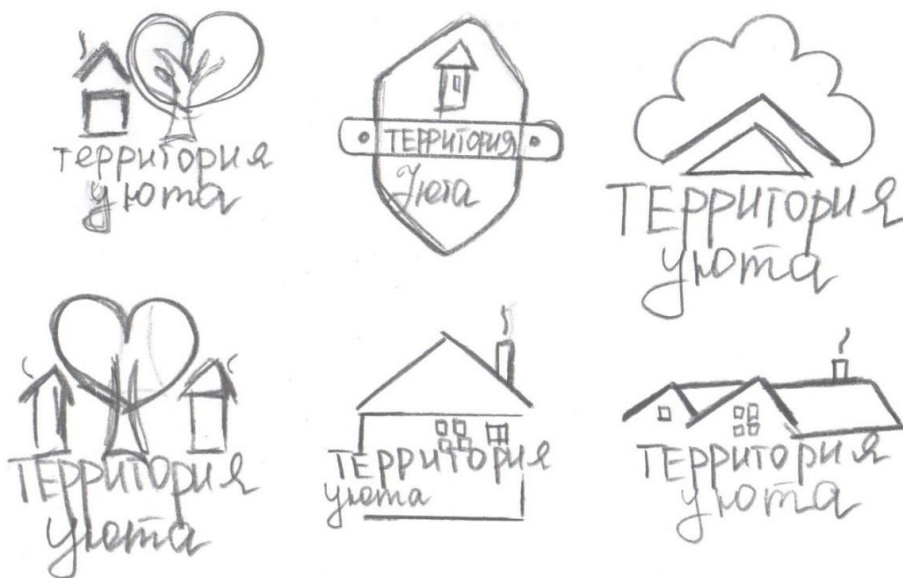 территория
уюта
ТЕРРИТОРИЯ
Уюта
ТЕРРИТОРИЯ
уюта
ТЕРРИТОРИЯ
уюта
ТЕРРИТОРИЯ
уюта
ТЕРРИТОРИЯ
уюта